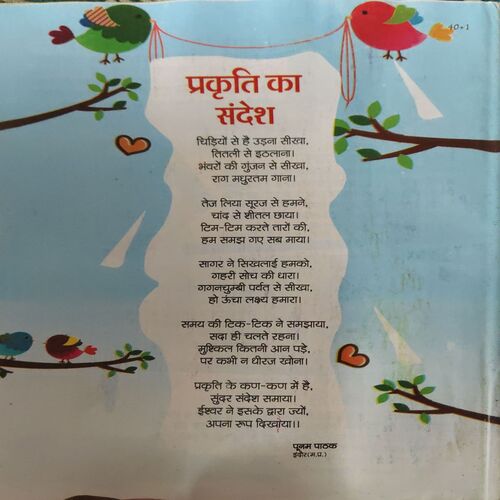 40+1
प्रकृति का
संदेश
चिड़ियों से है उड़ना सीखा,
तितली से इठलाना।
भंवरों की गुंजन से सीखा,
राग मधुरतम गाना।
तेज लिया सूरज से हमने,
चांद से शीतल छाया।
टिम-टिम करते तारों की,
हम समझ गए सब माया।
सागर ने सिखलाई हमको,
गहरी सोच की धारा।
गगनचुम्बी पर्वत से सीखा,
हो ऊंचा लक्ष्य हमारा।
समय की टिक-टिक ने समझाया,
सदा ही चलते रहना।
मुश्किल कितनी आन पड़े,
पर कभी न धीरज खोना।
प्रकृति के कण-कण में है,
सुंदर संदेश समाया।
ईश्वर ने इसके द्वारा ज्यों,
अपना रूप दिखाया।।
पूनम पाठक
इंदौर(म.प्र.)